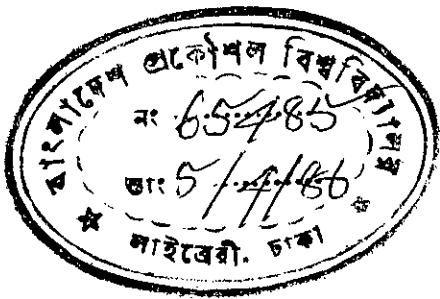 বাংলাদেশ প্রকৌশল বিশ্ববিদ্যালয়
নং 65485
তাং 5/4/86
লাইব্রেরী. ঢাকা